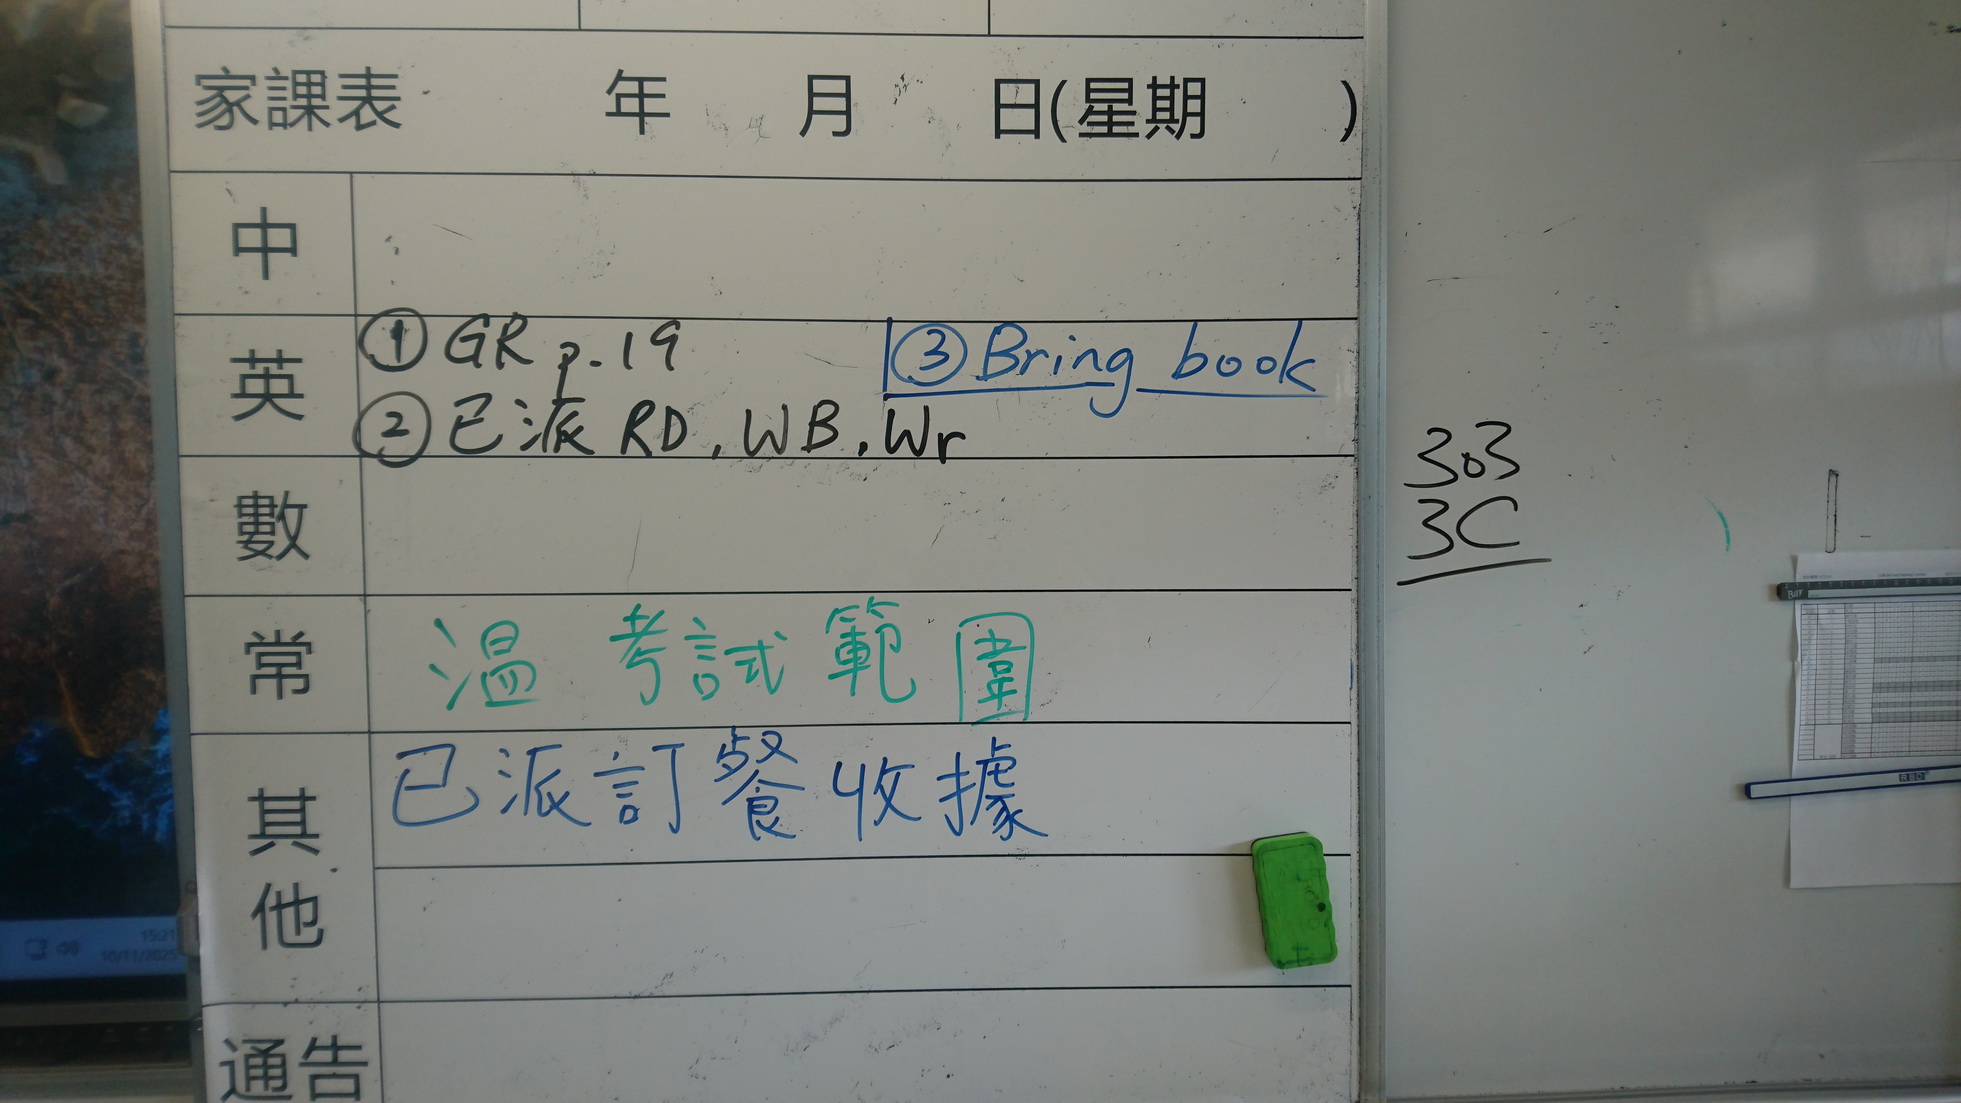 家課表 年 月 日(星期 )
中
英 ① GR p.19 ③ Bring book
② 已派 RD, WB, Wr
數
常 溫 考試範圍
其他 已派訂餐收據
通告
303
3C
15:21
10/11/2025